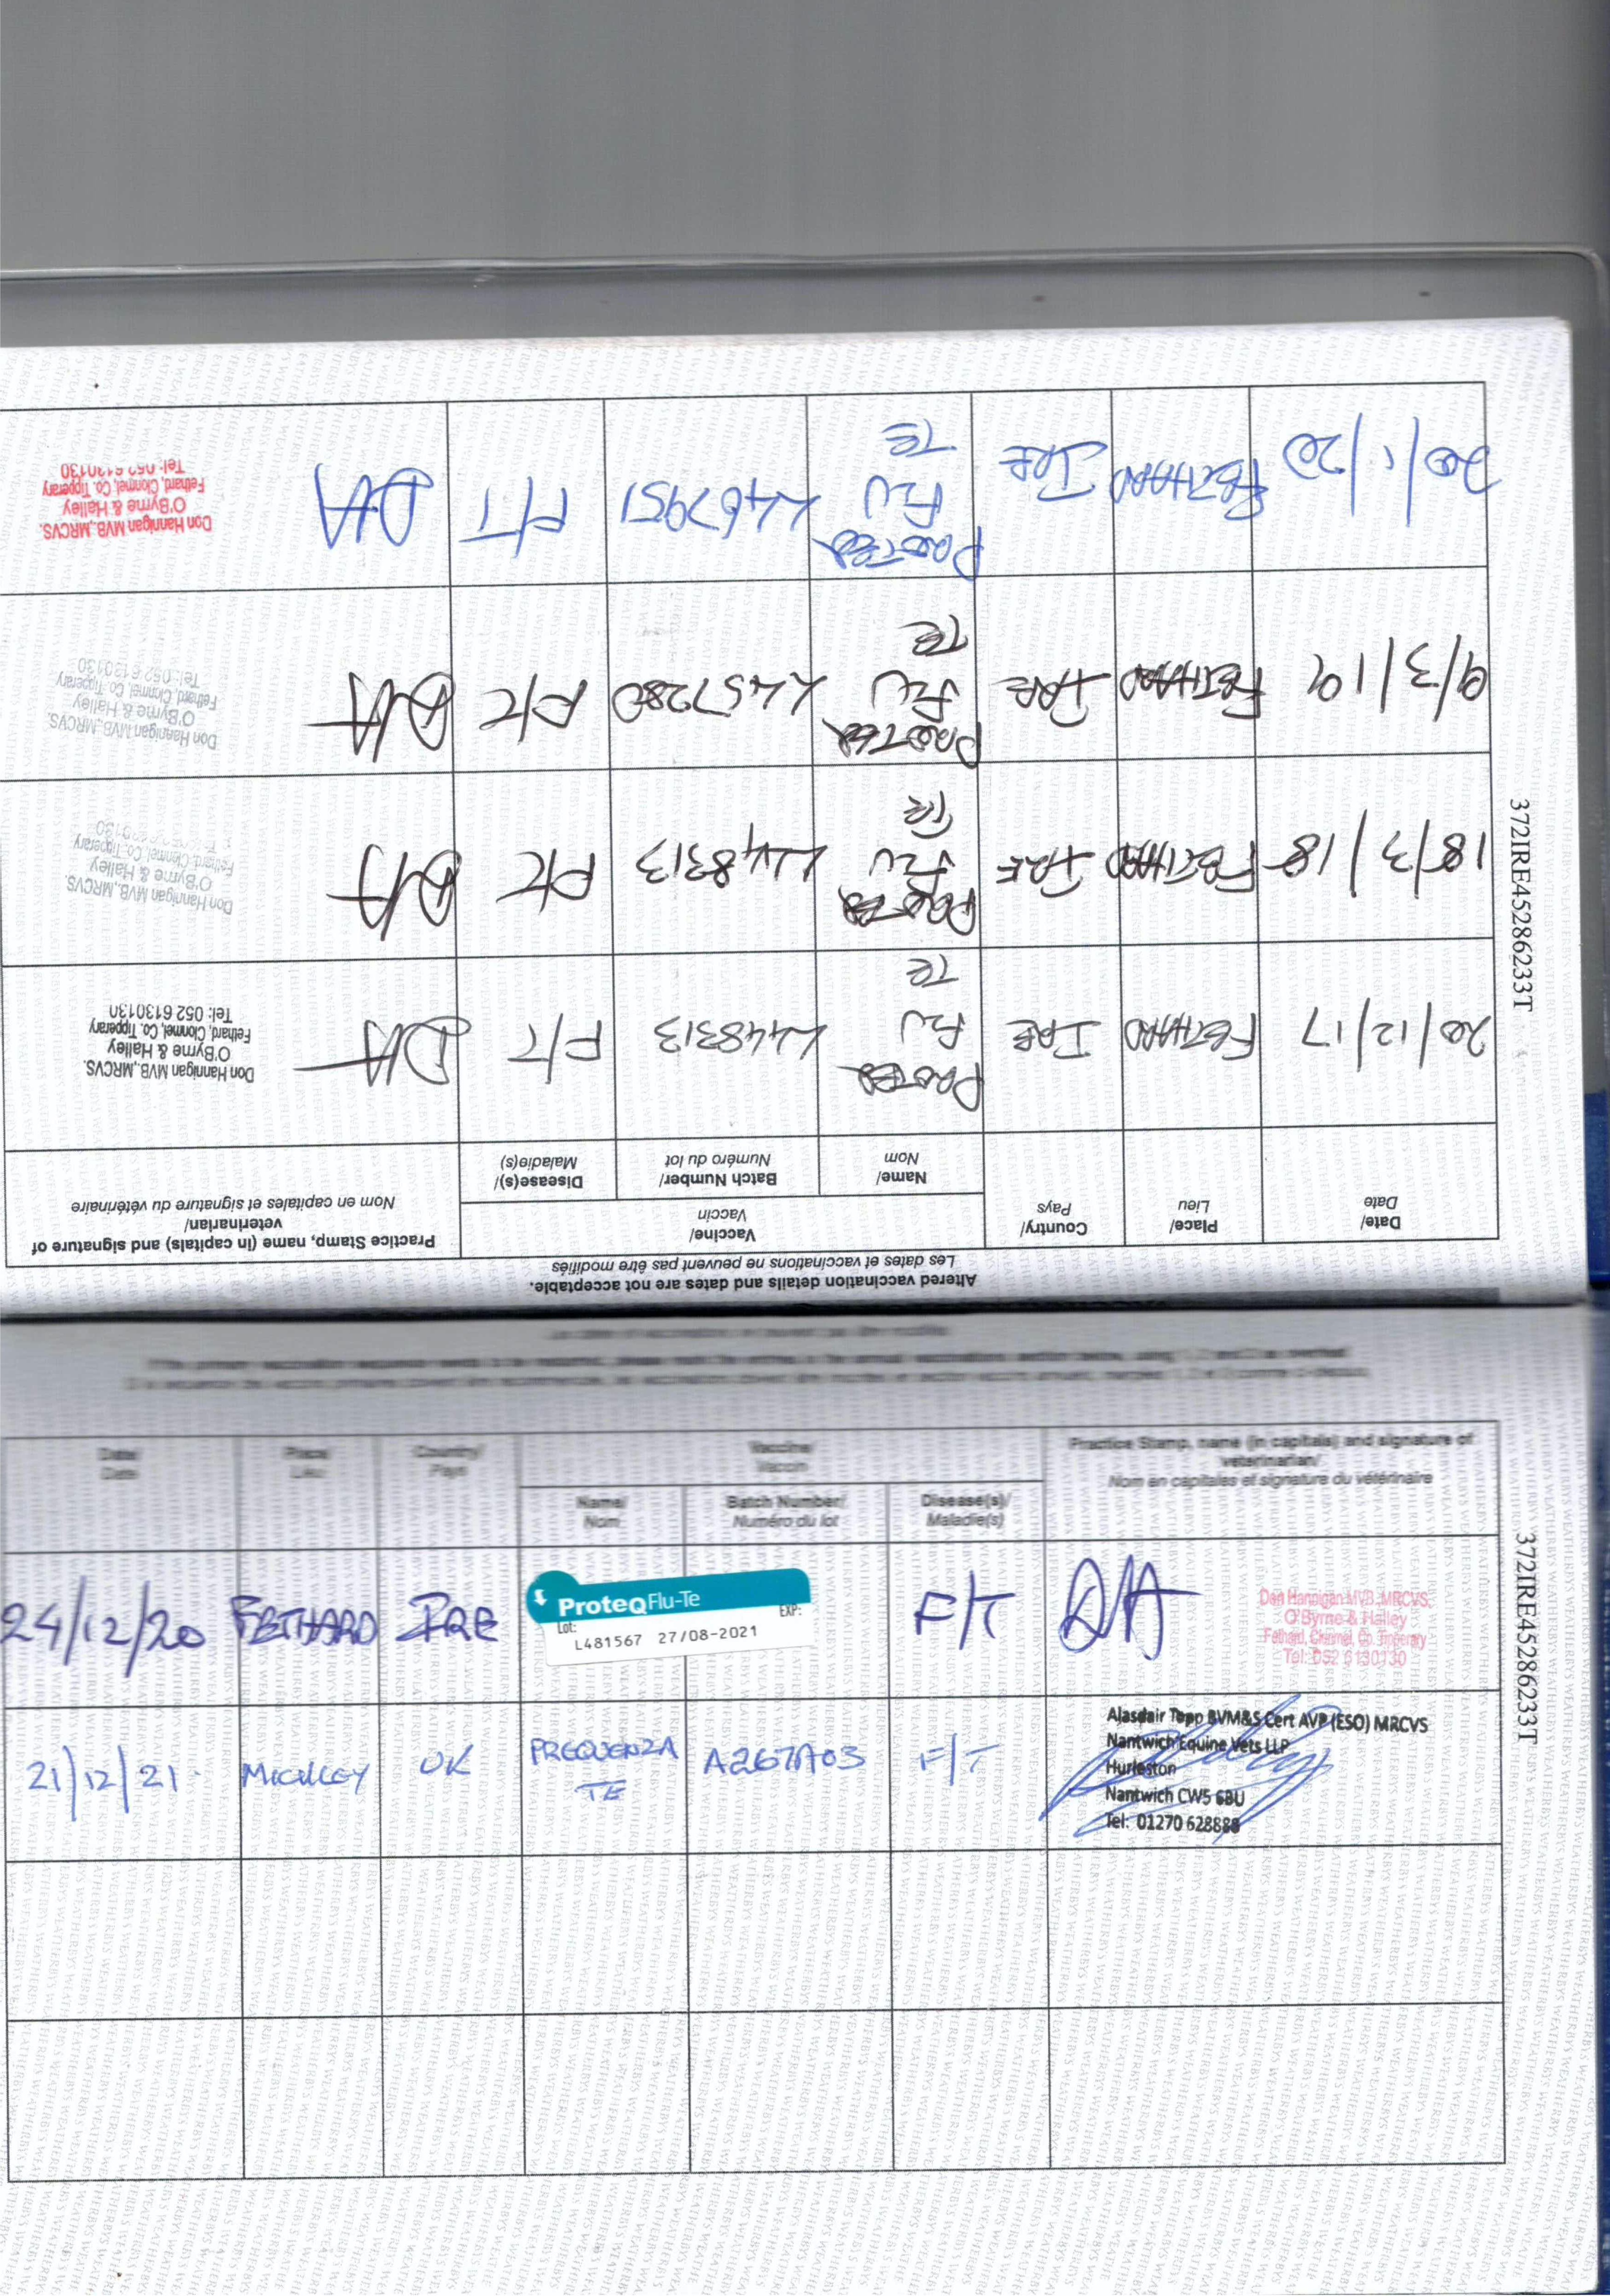 Altered vaccination details and dates are not acceptable.
Les dates et vaccinations ne peuvent pas être modifiés
Date/ Date
Place/ Lieu
Country/ Pays
Vaccine/ Vaccin
Name/ Nom
Batch Number/ Numéro du lot
Disease(s)/ Maladie(s)
Practice Stamp, name (in capitals) and signature of veterinarian/
Nom en capitales et signature du vétérinaire
20/12/17 FETHARD IRE PROTEQ FLU TE L448313 F/T
Don Hannigan MVB.,MRCVS.
O'Byrne & Halley
Fethard, Clonmel, Co. Tipperary
Tel: 052 6130130
18/3/18 FETHARD IRE PROTEQ FLU TE L448313 F/T
Don Hannigan MVB.,MRCVS.
O'Byrne & Halley
Fethard, Clonmel, Co. Tipperary
9/3/19 FETHARD IRE PROTEQ FLU TE L457280 F/T
Don Hannigan MVB.,MRCVS.
O'Byrne & Halley
Fethard, Clonmel, Co. Tipperary
Tel: 052 6130130
20/1/20 FETHARD IRE PROTEQ FLU TE L467951 F/T
Don Hannigan MVB.,MRCVS.
O'Byrne & Halley
Fethard, Clonmel, Co. Tipperary
Tel: 052 6130130
372IRE45286233T
Date/ Date
Place/ Lieu
Country/ Pays
Vaccine/ Vaccin
Name/ Nom
Batch Number/ Numéro du lot
Disease(s)/ Maladie(s)
Practice Stamp, name (in capitals) and signature of veterinarian/
Nom en capitales et signature du vétérinaire
24/12/20 FETHARD IRE
ProteqFlu-Te
Lot: EXP:
L481567 27/08-2021
F/T
Don Hannigan MVB.,MRCVS.
O'Byrne & Halley
Fethard, Clonmel, Co. Tipperary
Tel: 052 6130130
21/12/21 MICKLEY UK PREQUENZA TE A267A03 F/T
Alasdair Topp BVM&S Cert AVP (ESO) MRCVS
Nantwich Equine Vets LLP
Hurleston
Nantwich CW5 6BU
Tel: 01270 628888
372IRE45286233T